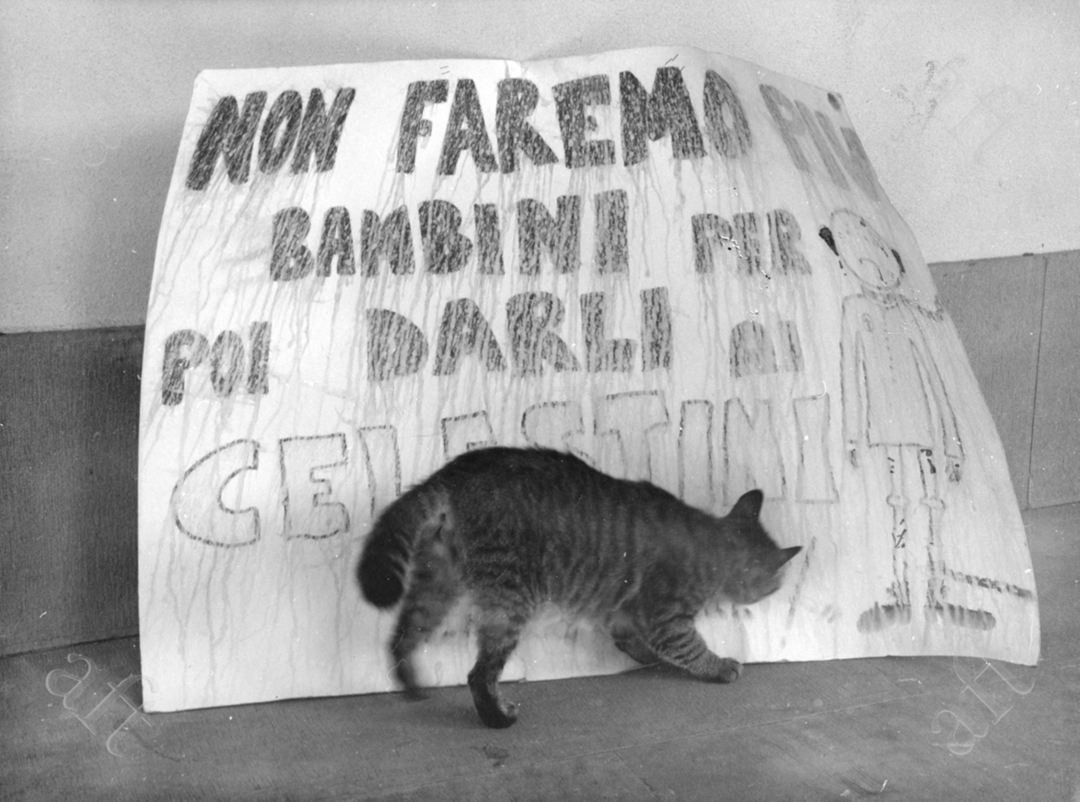 NON FAREMO PIÙ
BAMBINI PER
POI DARLI AI
CELESTINI
aft
aft